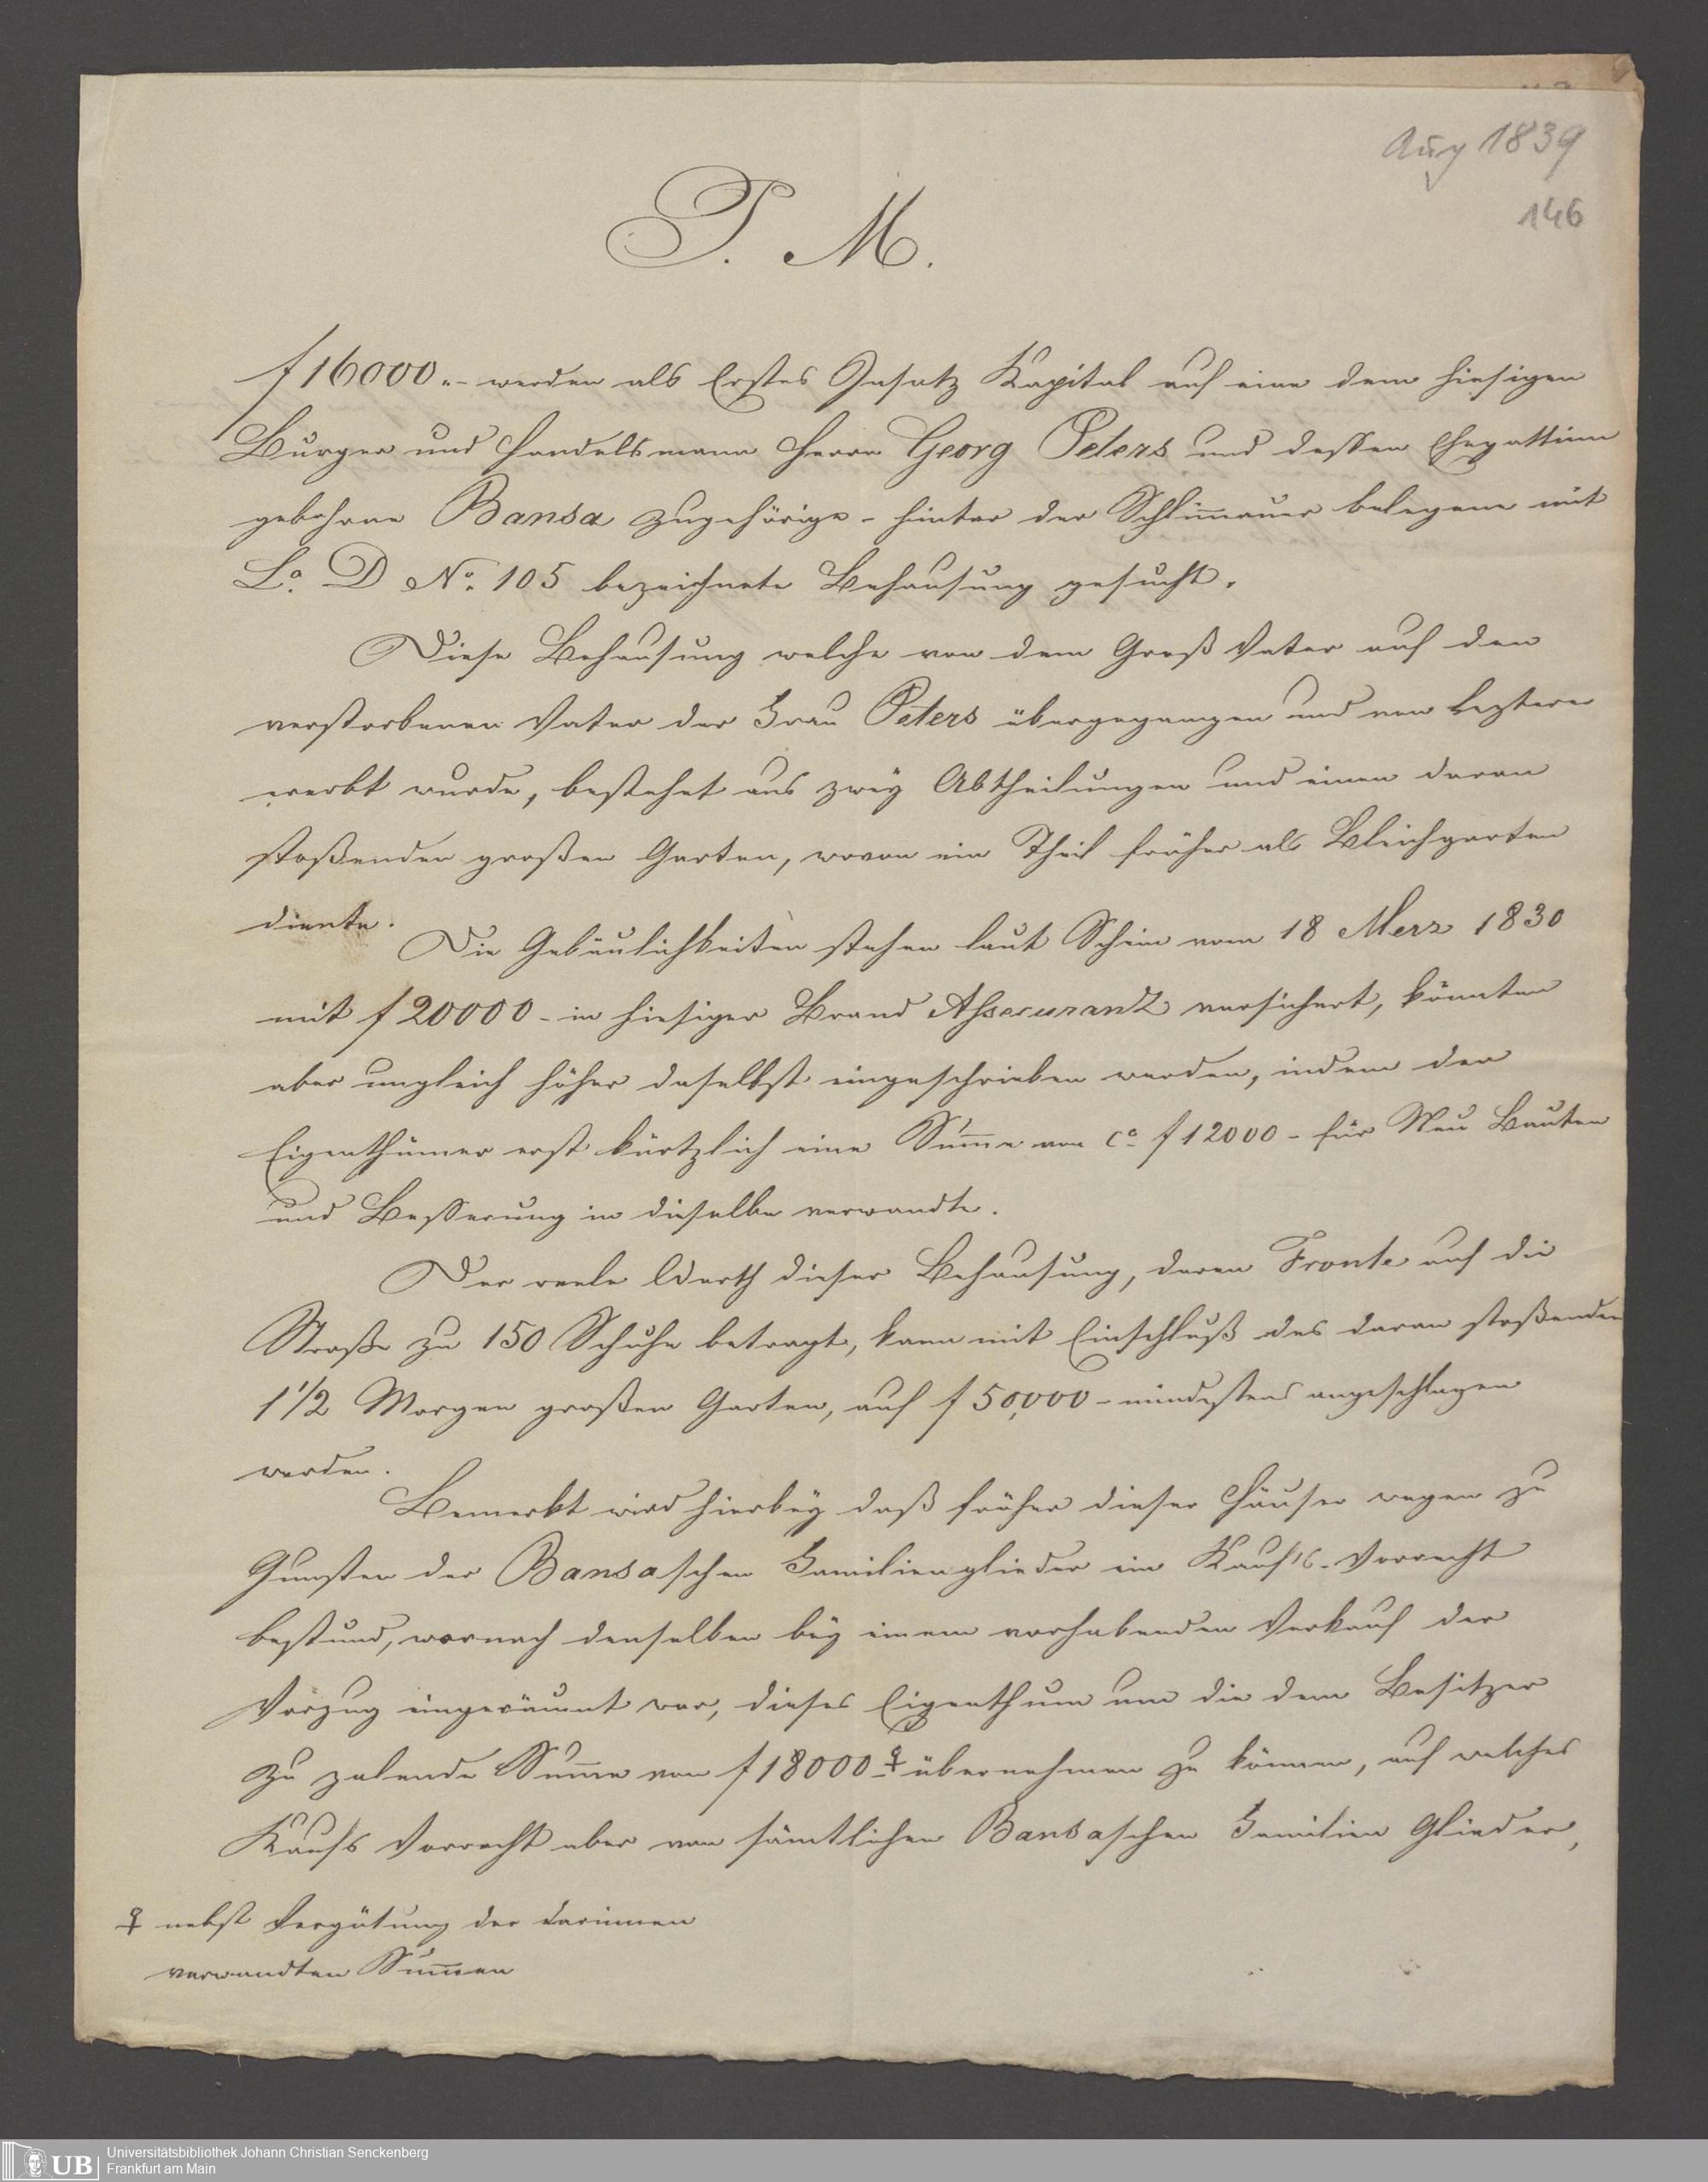 Aug 1839
146
P. M.
f 16000.- werden als Erstes Insatz Kapital auf eine dem hiesigen
Burger und Handelsmann Herrn Georg Peters und dessen Ehegattinn
gebohrne Bansa zugehörige - hinter der Schlimmauer belegene mit
La. D No. 105 bezeichnete Behausung gesucht.
Diese Behausung welche von dem Groß Vater auf den
verstorbenen Vater der Frau Peters übergegangen und von Lezterer
ererbt wurde, bestehet aus zwey Abtheilungen und einen daran
stoßenden großen Garten, wovon ein Theil früher als Bleichgarten
diente.
Die Gebäulichkeiten stehen laut Schein vom 18 Merz 1830
mit f 20000 - in hiesiger Brand Assecuranz versichert, könnten
aber ungleich höher daselbst eingeschrieben werden, indem der
Eigenthümer erst kürtzlich eine Summe von ca f 12000 - für Neu Bauten
und Besserung in dieselbe verwandte.
Der reele Werth dieser Behausung, deren Fronte auf die
Straße zu 150 Schuhe betragt, kann mit Einschluß des daran stoßenden
1 1/2 Morgen großen Garten, auf f 50,000 - mindestens angeschlagen
werden.
Bemerkt wird hierbey daß früher dieser Häuser wegen zu
Gunsten der Bansaschen Familienglieder ein Kaufs-Vorrecht
bestund, wornach denselben bey einem vorhabenden Verkauf der
Vorzug eingeräumt war, dieses Eigenthum um die dem Besitzer
zu zalende Summe von f 18000 - ♀ übernehmen zu können, auf welches
Kaufs Vorrecht aber von sämtlichen Bansaschen Familien Glieder,
♀ nebst Vergütung der darinnen
verwandten Summen
UB
Universitätsbibliothek Johann Christian Senckenberg
Frankfurt am Main